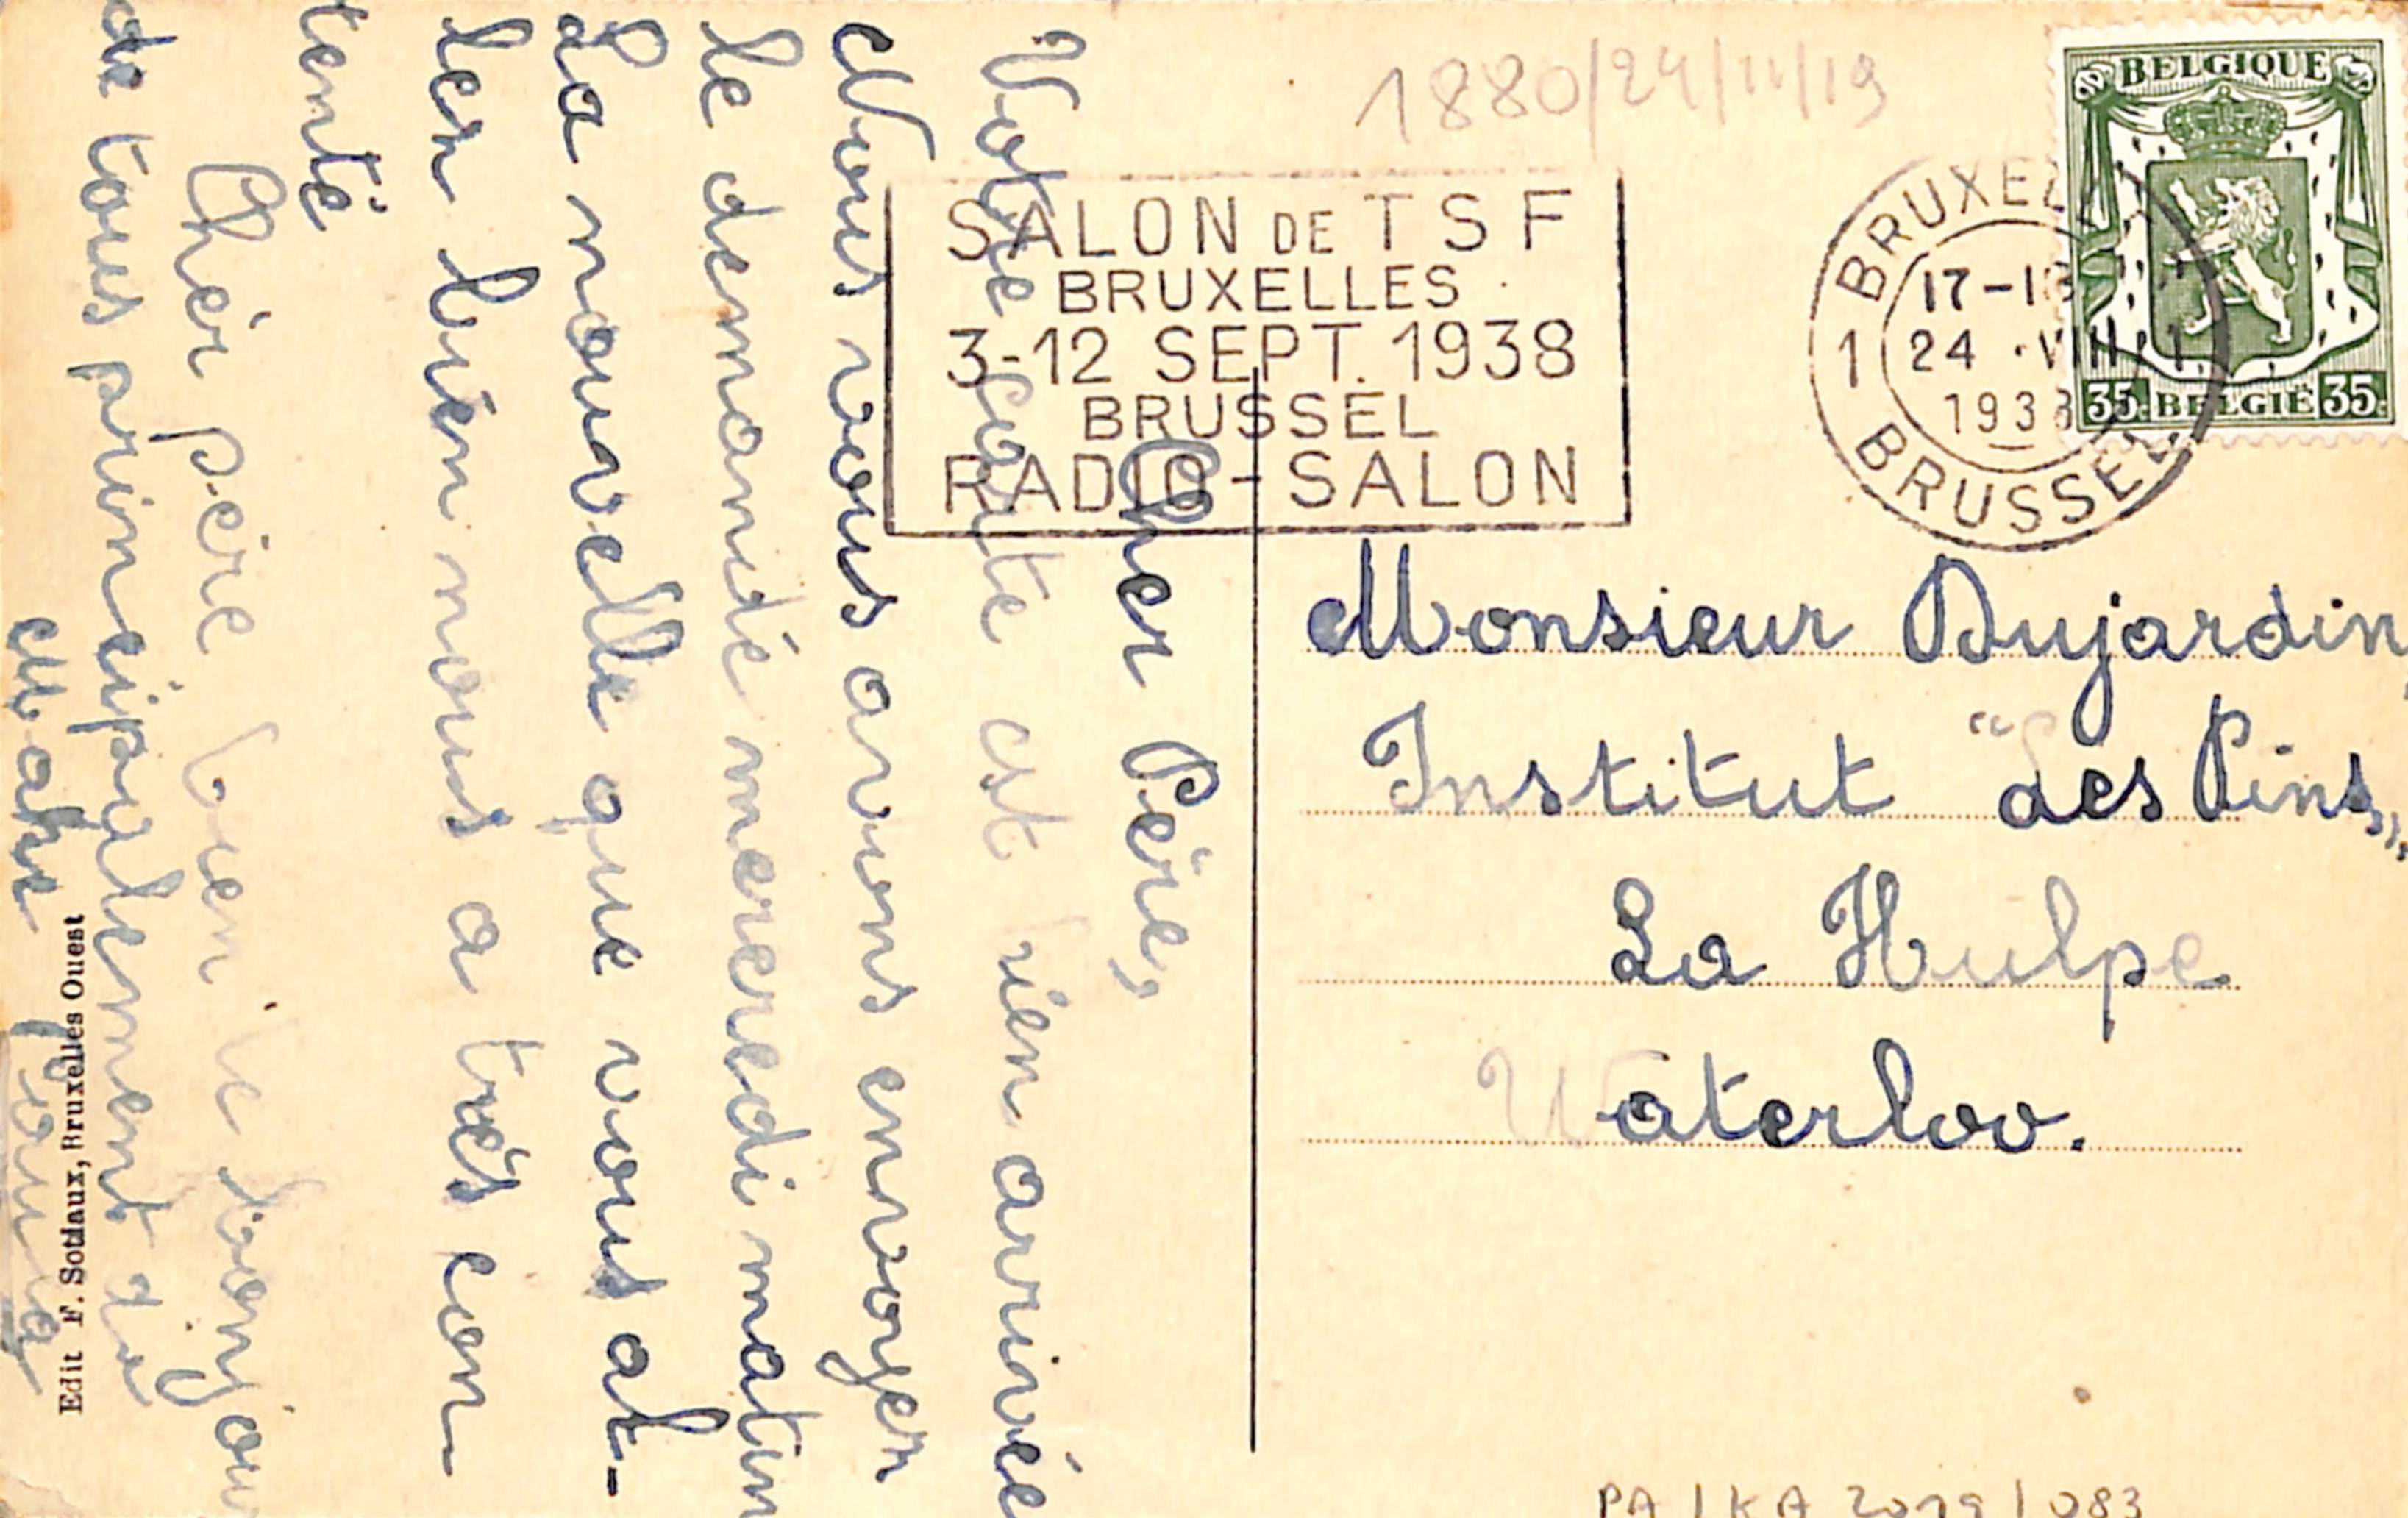 1880/24/11/19
BELGIQUE
35 BELGIË 35
SALON DE T S F
BRUXELLES
3-12 SEPT. 1938
BRUSSEL
RADIO-SALON
17-18
24 VIII
1938
1 BRUSSEL
Monsieur Dujardin
Institut "Les Pins"
La Hulpe
Waterloo.
Cher Père,
Votre carte est bien arrivée
Nous vous avons envoyer
le demandé mercredi matin
La nouvelle que vous al-
ler bien nous a tres con
tenté
Chèr père bien le bonjour
de tous principalement de
votre
Edit F. Sodiaux, Bruxelles Ouest
PA/KA 2019/083